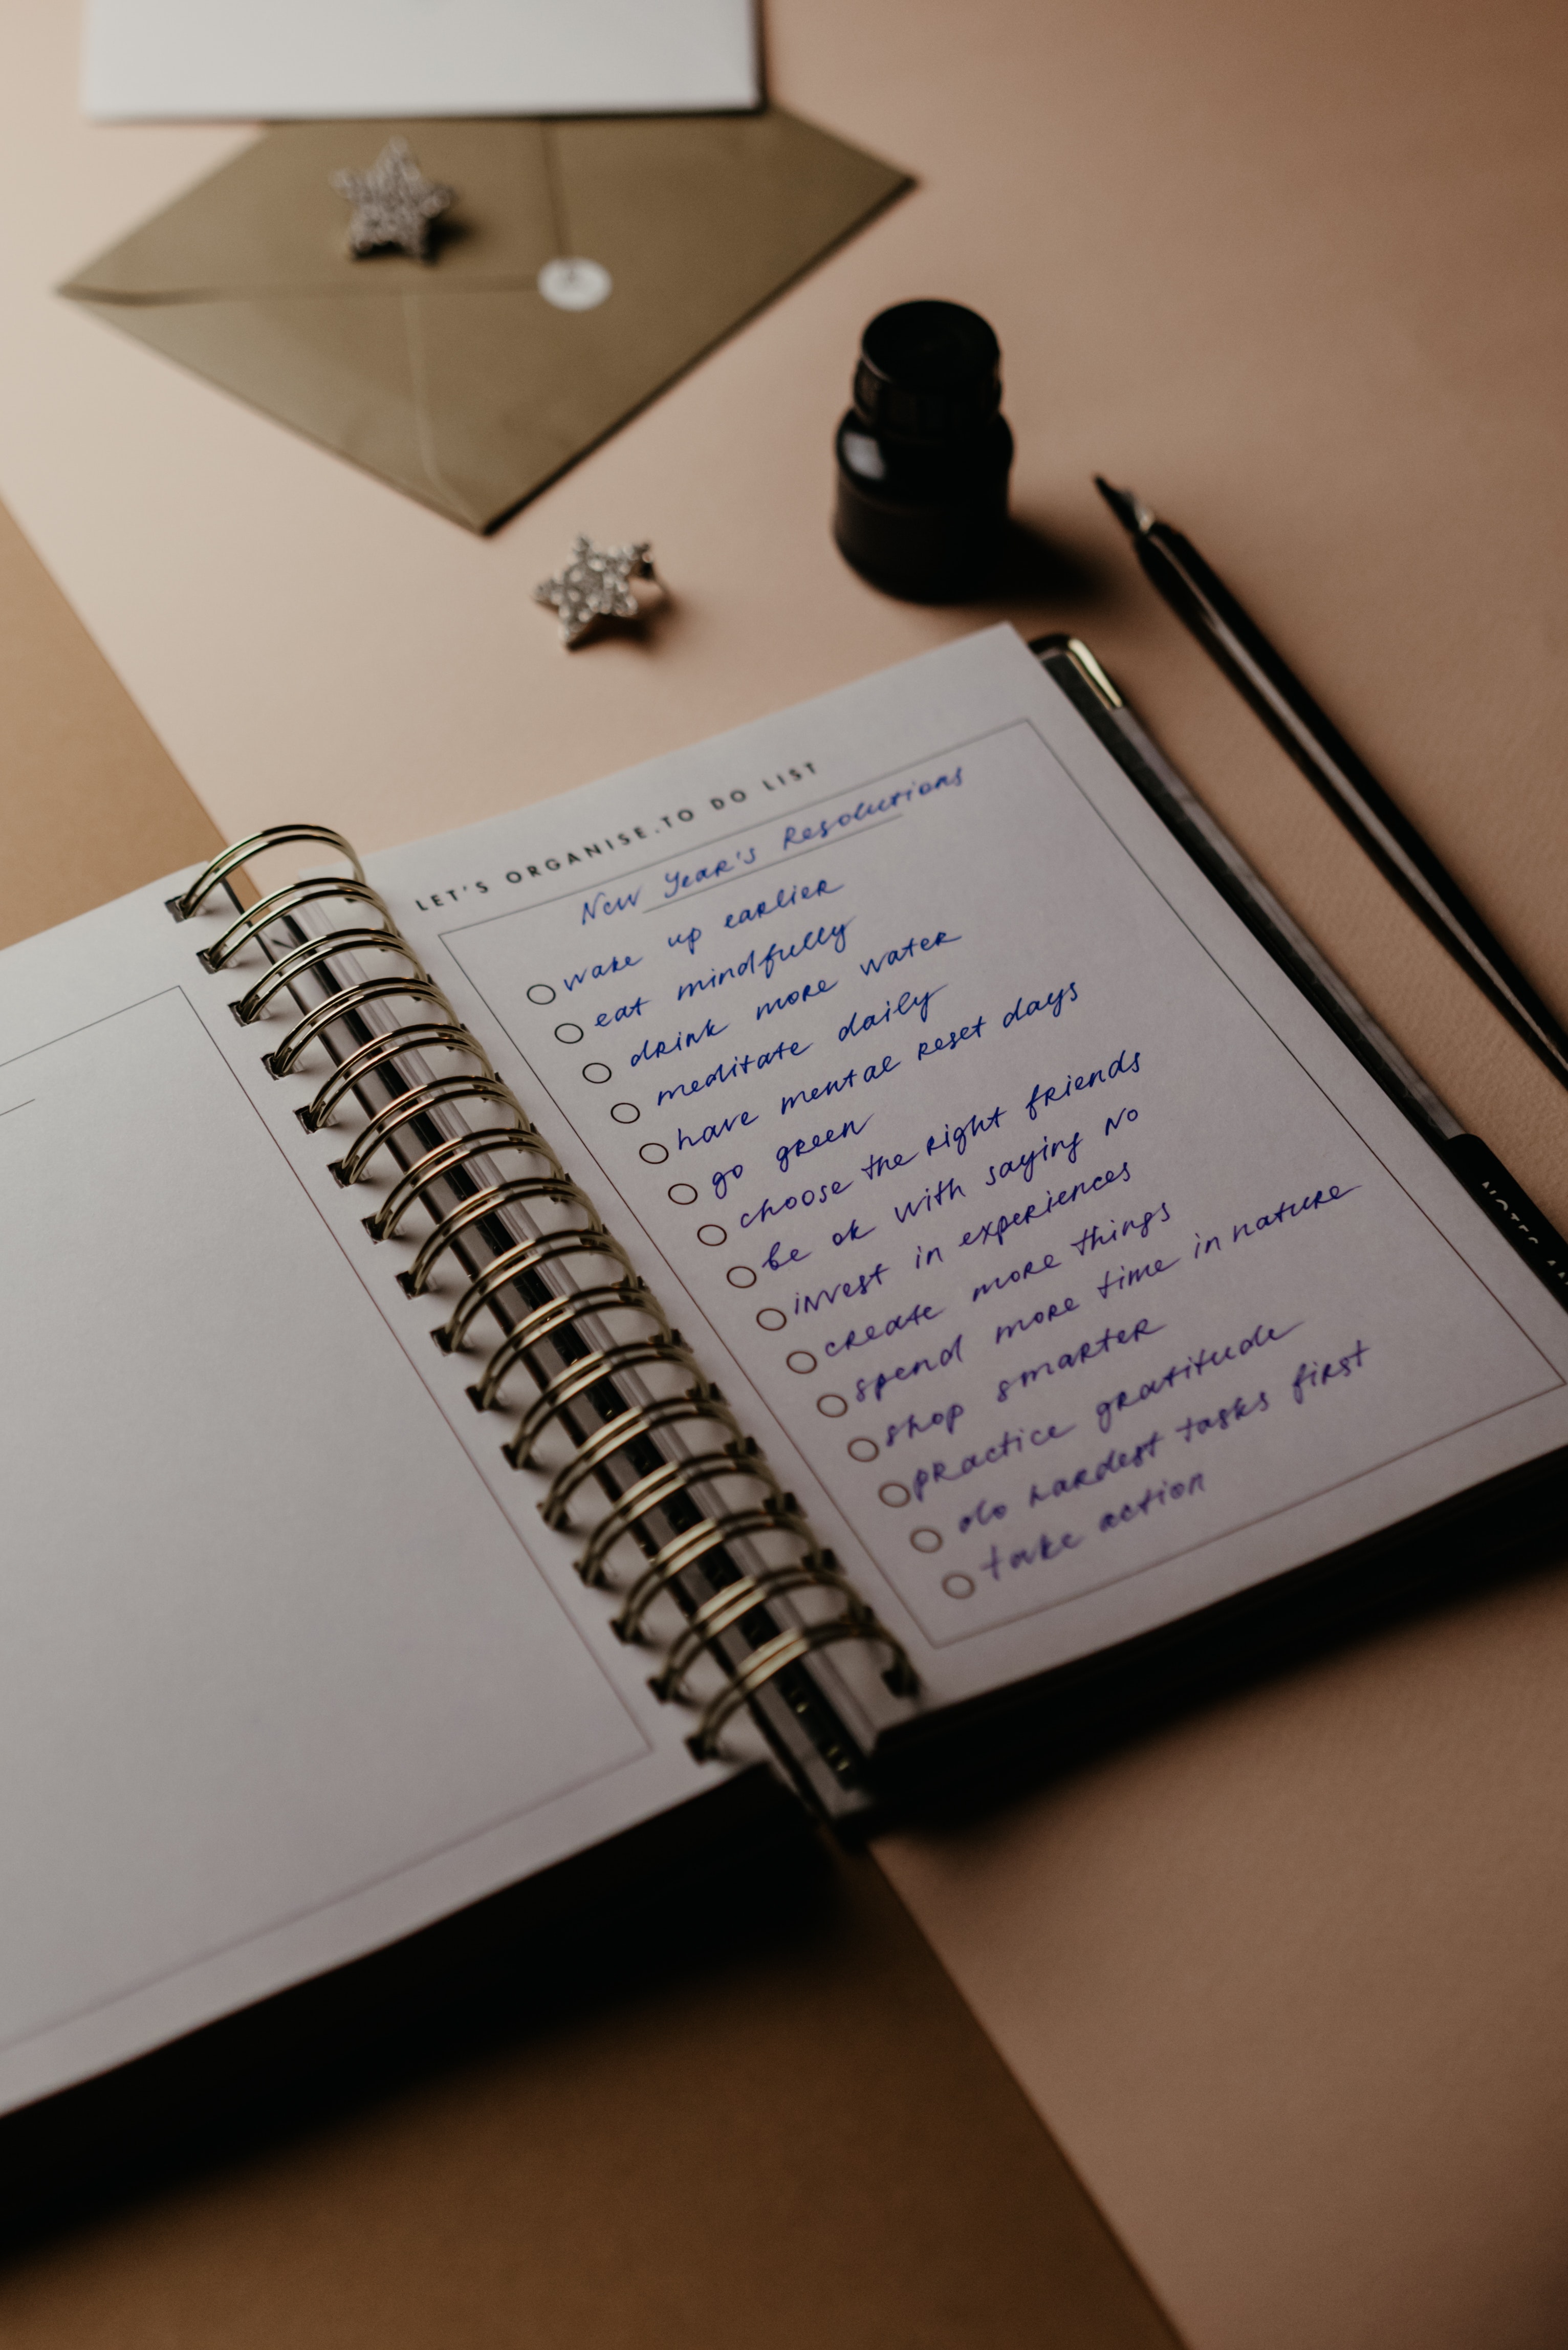 LET'S ORGANISE.TO DO LIST
New Year's Resolutions
wake up earlier
eat mindfully
drink more water
meditate daily
have mental reset days
go green
choose the right friends
be ok with saying NO
invest in experiences
create more things
spend more time in nature
shop smarter
practice gratitude
do hardest tasks first
take action
NOTES